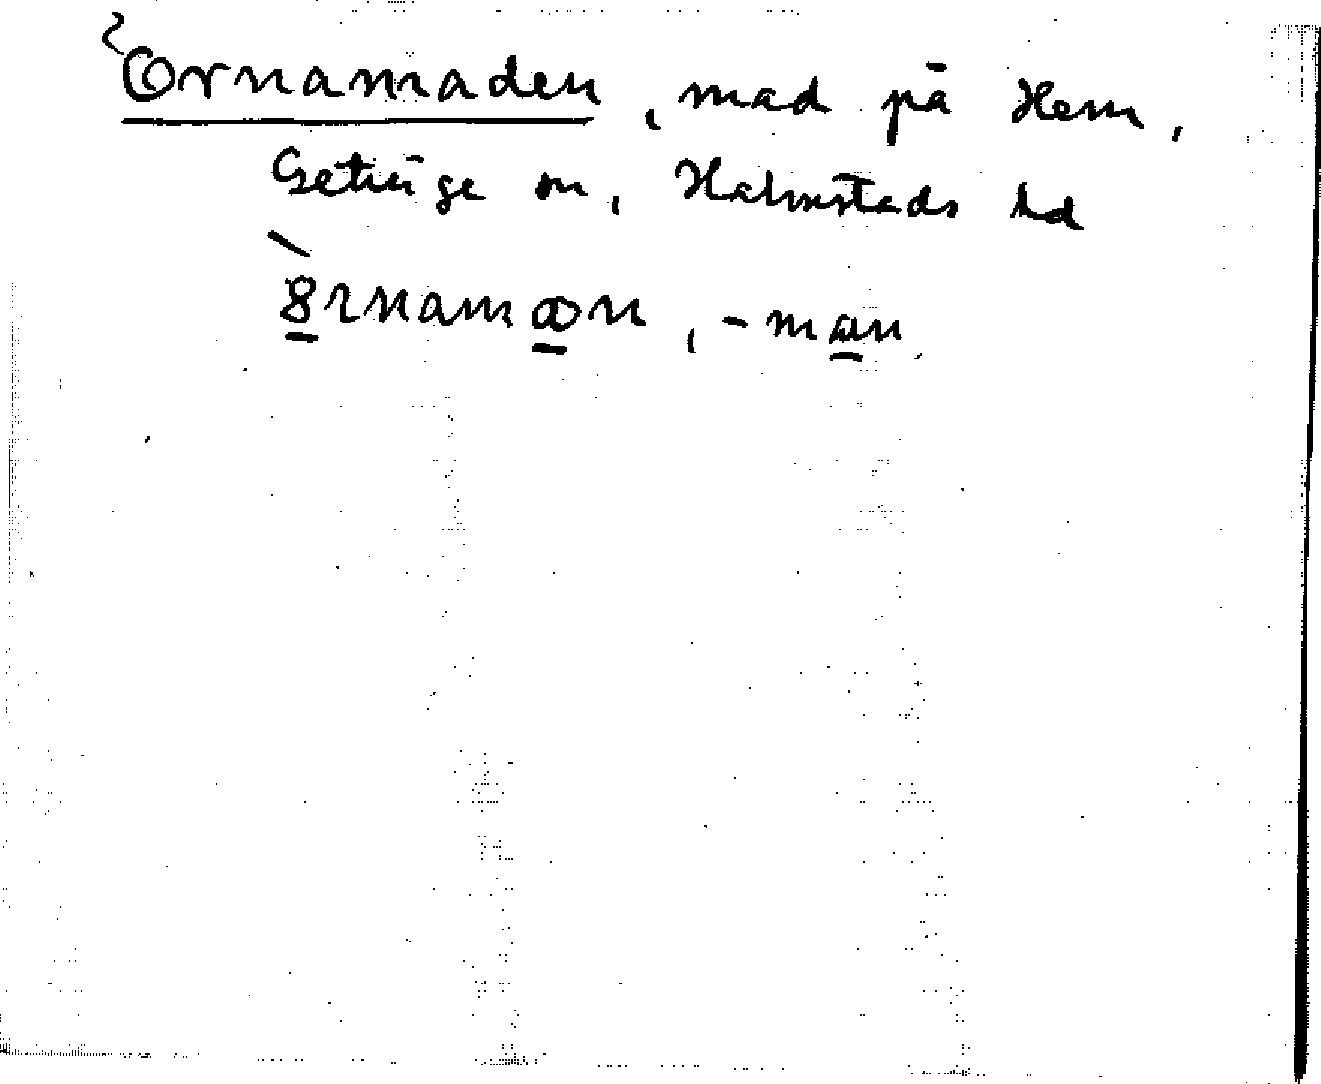 Ornamaden, mad på Hem,
Getinge sn, Halmstads hd
8rnamaon, -man